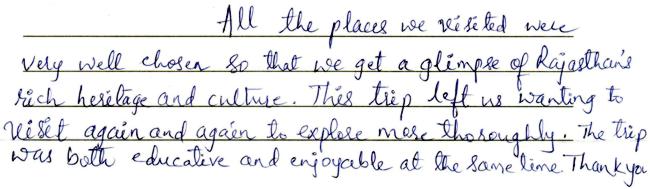 All the places we visited were
very well chosen so that we get a glimpse of Rajasthan's
rich heritage and culture. This trip left us wanting to
visit again and again to explore more thoroughly. The trip
was both educative and enjoyable at the same time Thank you